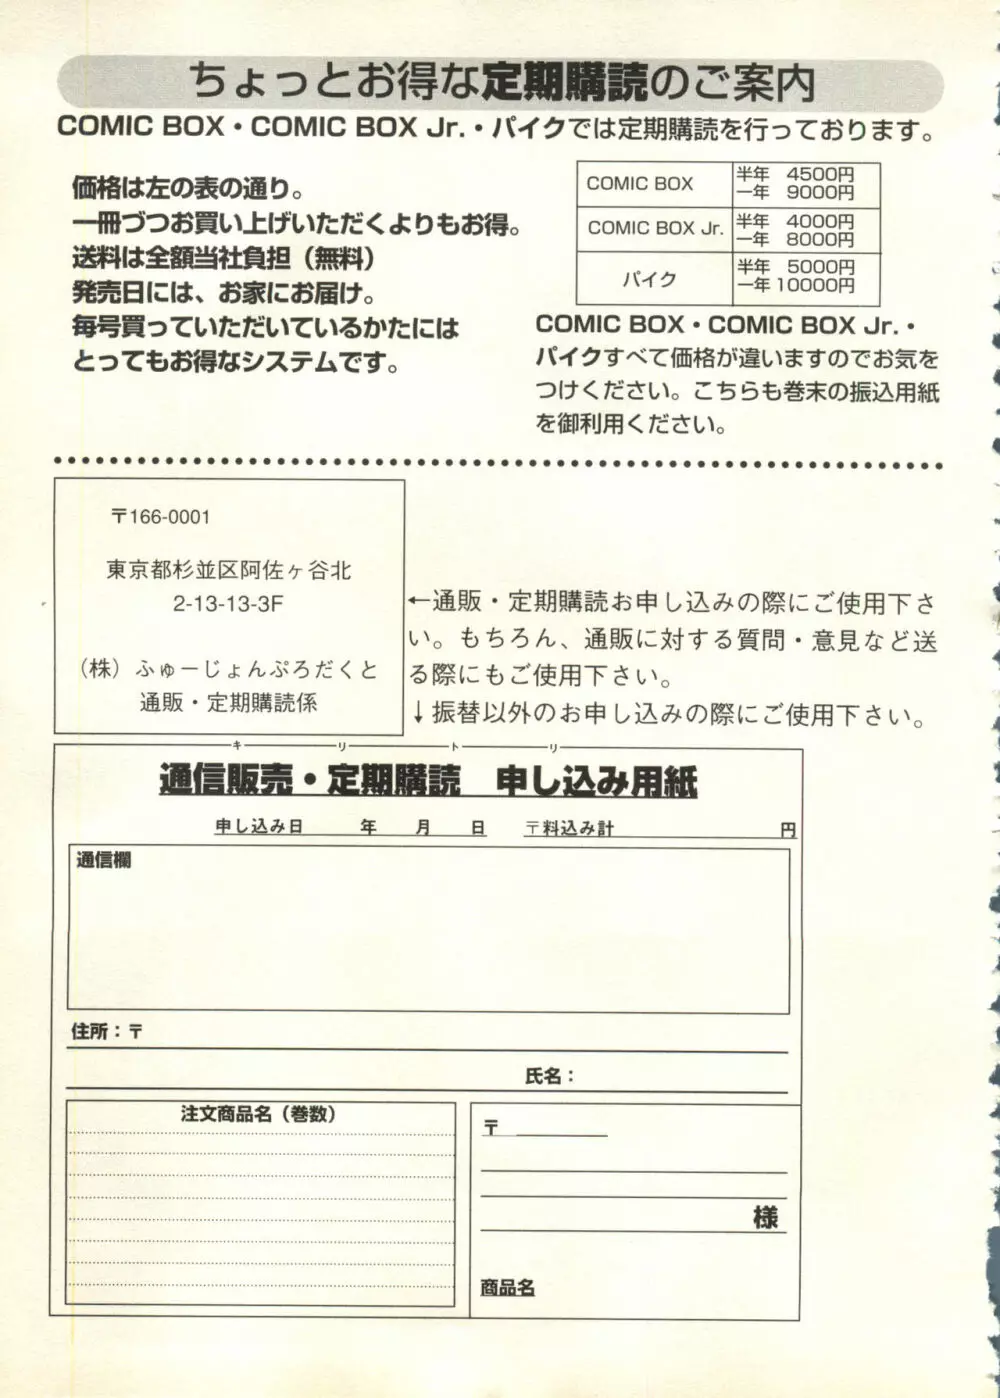 ちょっとお得な定期購読のご案内
COMIC BOX・COMIC BOX Jr.・パイクでは定期購読を行っております。
価格は左の表の通り。
一冊づつお買い上げいただくよりもお得。
送料は全額当社負担（無料）
発売日には、お家にお届け。
毎号買っていただいているかたには
とってもお得なシステムです。
COMIC BOX 半年 4500円
一年 9000円
COMIC BOX Jr. 半年 4000円
一年 8000円
パイク 半年 5000円
一年 10000円
COMIC BOX・COMIC BOX Jr.・
パイクすべて価格が違いますのでお気を
つけください。こちらも巻末の振込用紙
を御利用ください。
〒166-0001
東京都杉並区阿佐ヶ谷北
2-13-13-3F
（株）ふゅーじょんぷろだくと
通販・定期購読係
←通販・定期購読お申し込みの際にご使用下さ
い。もちろん、通販に対する質問・意見など送
る際にもご使用下さい。
↓振替以外のお申し込みの際にご使用下さい。
キリトリ
通信販売・定期購読 申し込み用紙
申し込み日 年 月 日 〒料込み計 円
通信欄
住所：〒
氏名：
注文商品名（巻数）
〒
様
商品名